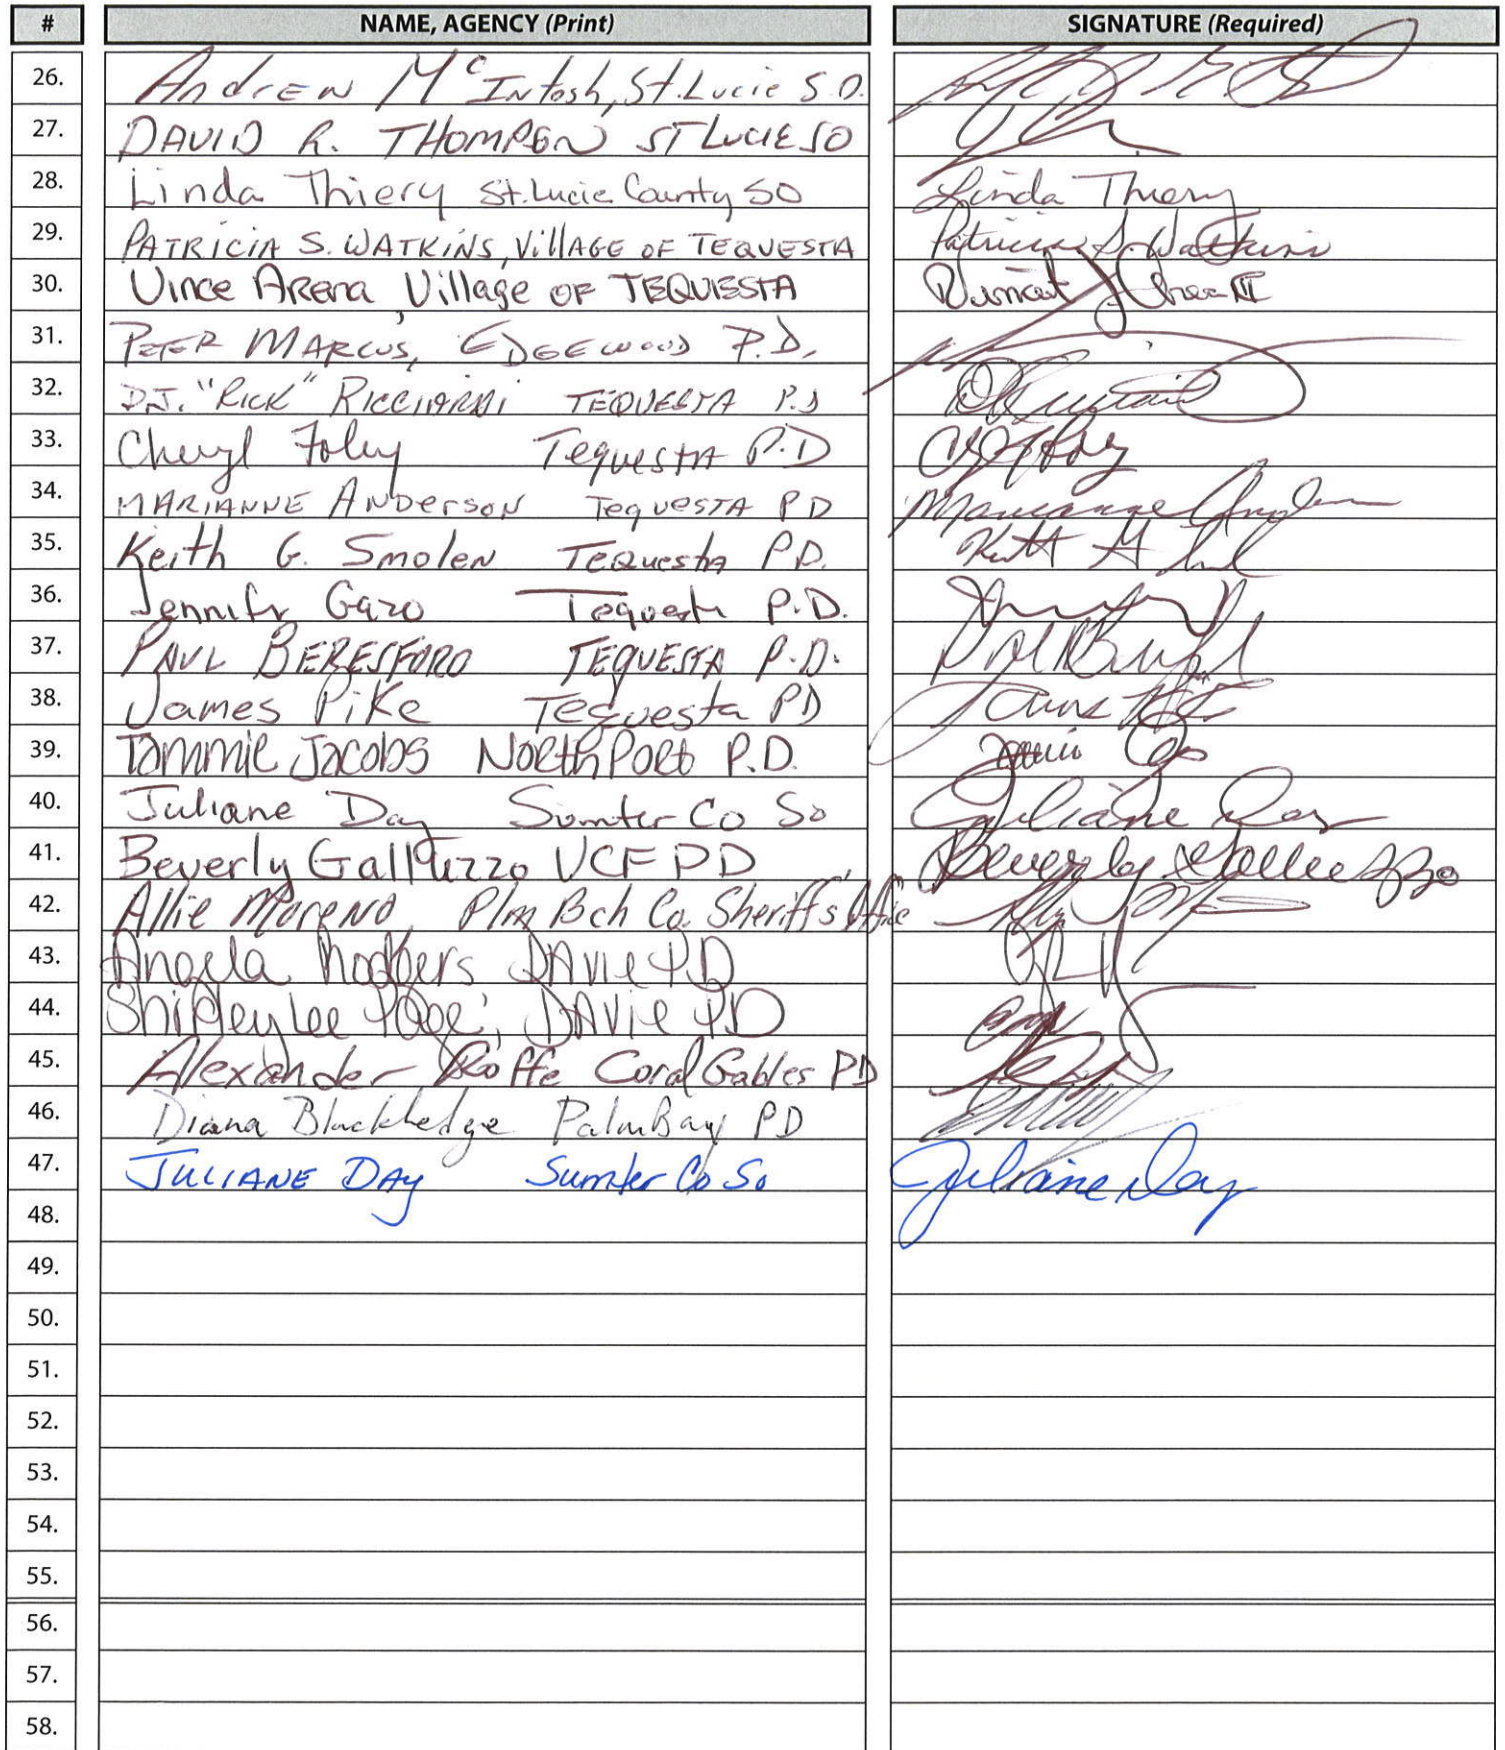 # NAME, AGENCY (Print) SIGNATURE (Required)
26. Andrew McIntosh, St. Lucie S.O.
27. DAVID R. THOMPSON ST LUCIE SO
28. Linda Thiery St. Lucie County SO Linda Thiery
29. PATRICIA S. WATKINS, VillAGE OF TEQUESTA Patricia S. Watkins
30. Vince Arena, Village OF TEQUESTA
31. PETER MARCUS, EDGEWOOD P.D.
32. D.J. "RICK" RICCIARDI TEQUESTA P.D
33. Cheryl Foley Tequesta P.D
34. MARIANNE ANDerson TequesTA PD Marianne
35. Keith G. Smolen Tequesta P.D.
36. Jennifr Tequesta P.D.
37. PAUL BERESFORD TEQUESTA P.D.
38. James Pike Tequesta PD
39. Tammie Jacobs North Port P.D.
40. Juliane Day Sumter Co So Juliane Day
41. Beverly Galluzzo UCF PD Beverly Galluzzo
42. Allie Moreno, Plm Bch Co. Sheriff's Office
43. Angela DAVIE PD
44. Shirley Lee DAVIE PD
45. Alexander Coral Gables PD
46. Diana Blackledge Palm Bay PD
47. JULIANE DAY Sumter Co So Juliane Day
48.
49.
50.
51.
52.
53.
54.
55.
56.
57.
58.